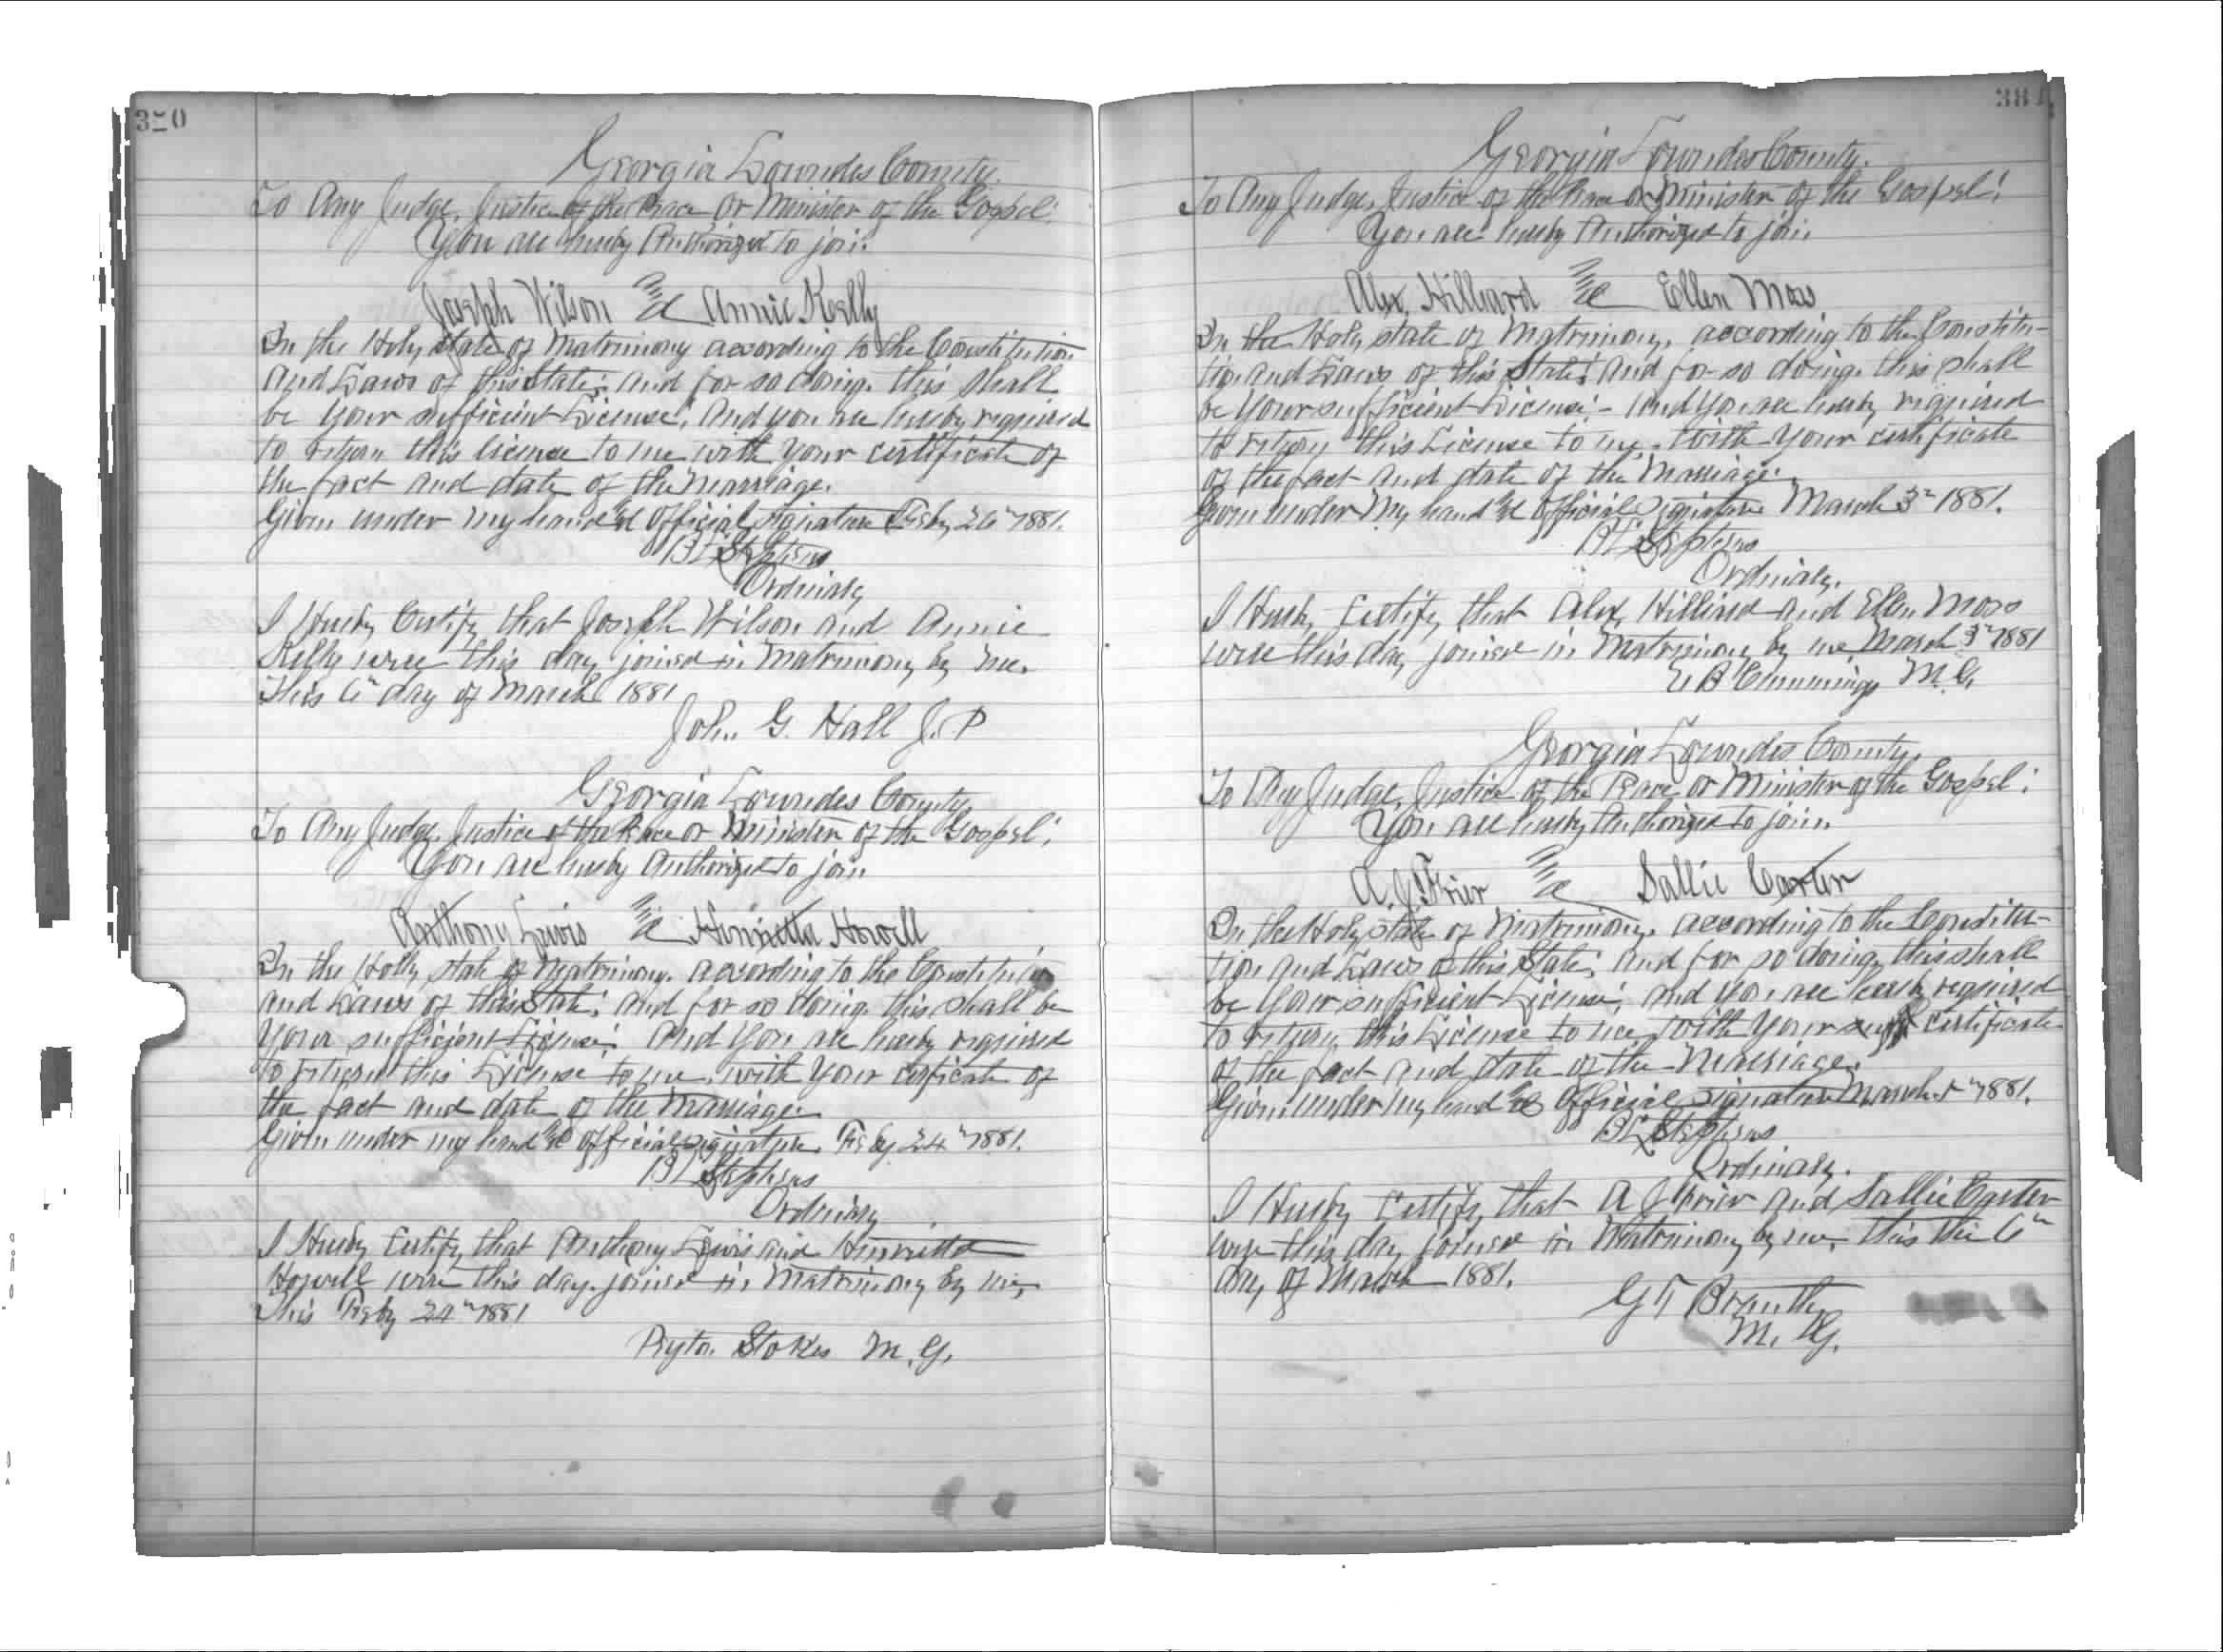 380
Georgia Lowndes County.
To Any Judge, Justice of the Peace or Minister of the Gospel:
You are hereby Authorized to join
Joseph Wilson and Annie Kelly
In the Holy state of Matrimony according to the Constitution
and Laws of this State; and for so doing, this shall
be your sufficient License; And you are hereby required
to return this license to me with your certificate of
the fact and date of the Marriage.
Given under my hand and Official signature Feby 26th 1881.
B L Stephens
Ordinary
I Hereby Certify that Joseph Wilson and Annie
Kelly were this day joined in Matrimony by me.
This 6th day of March 1881
John G. Hall J.P
Georgia Lowndes County
To Any Judge, Justice of the Peace or Minister of the Gospel;
You are hereby Authorized to join
Anthony Lewis and Henrietta Howell
In the Holly state of Matrimony, according to the Constitution
and Laws of this State; and for so doing this shall be
your sufficient License; And You are hereby required
to return this License to me, with Your cerficate of
the fact and date of the Marriage.
Given under my hand and official signature Feby 24th 1881.
B L Stephens
Ordinary
I Hereby Certify that Anthony Lewis and Henrietta
Howell were this day joined in Matrimony by me,
This Feby 24th 1881
Peyton Stokes M.G.
381
Georgia Lowndes County.
To Any Judge, Justice of the Peace or Minister of the Gospel;
You are hereby Authorized to join
Alex, Hilliard and Ellen Moss
In the Holy state of Matrimony, according to the Constitu-
tion and Laws of this State; And for so doing this shall
be Your sufficient License; - And You are hereby required
to return this License to me, with Your certificate
of the fact and date of the Marriage.
Given under My hand and Official Signature March 3rd 1881.
B L Stephens
Ordinary.
I Hereby Certify that Alex, Hilliard and Ellen Moss
were this day joined in Matrimony by me March 3rd 1881
Cummings M.G.
Georgia Lowndes County
To Any Judge, Justice of the Peace or Minister of the Gospel;
You are hereby Authorized to join
A. J. Frier and Sallie Carter
In the Holy state of Matrimony, according to the Constitu-
tion and Laws of this State; and for so doing this shall
be Your sufficient License; And You are hereby required
to return this License to me, with Your certificate
of the fact and date of the Marriage.
Given under my hand and Official signature March 5th 1881.
B L Stephens
Ordinary.
I Hereby Certify that A J Frier and Sallie Carter
were this day joined in Matrimony by me, this the 6th
day of March 1881.
Brantly
M. G.